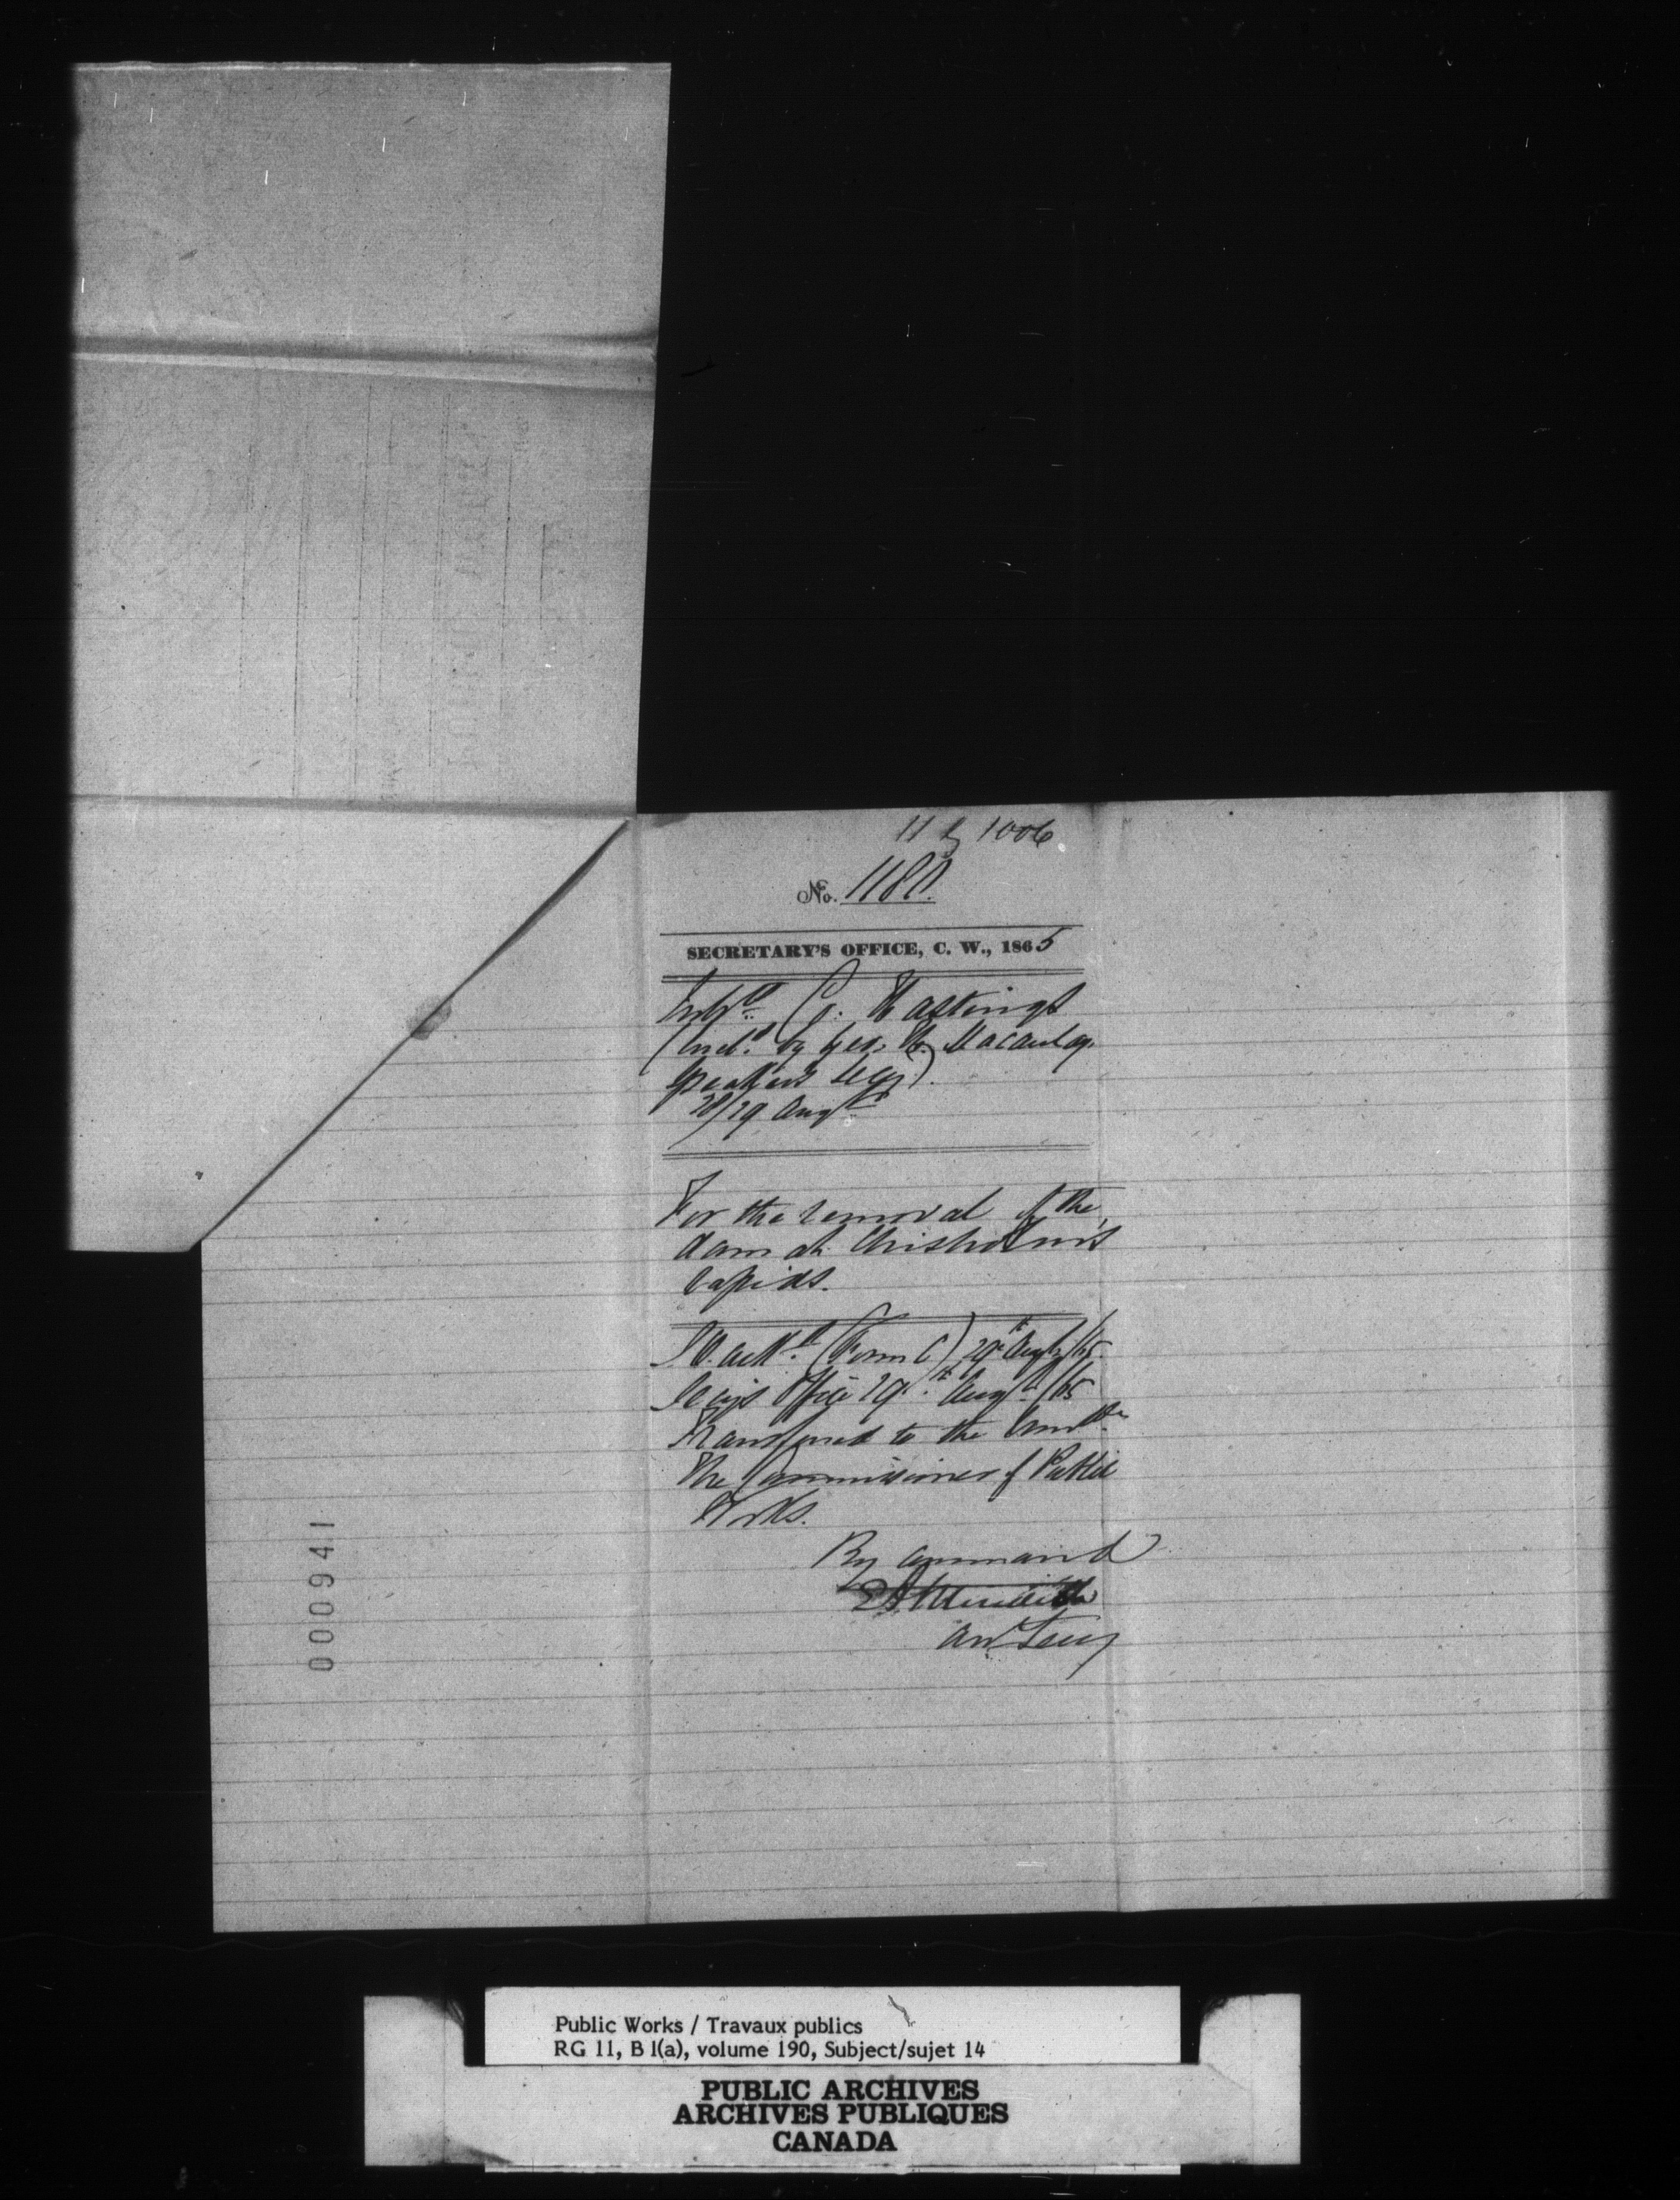 11 by 1006
No. 1180.
SECRETARY'S OFFICE, C. W., 1865
Co: Hastings
(encl.d by Geo. H. Macaulay
Speaker's Secy).
28/29 Augt
For the removal of the
dam at Chisholm's
rapids.
Ackd. (Form C) 29th Augt/65.
Secy's Office 29th Augt/65
Transferred to the Honble
the Commissioner of Public
Works.
By Command
E A Meredith
Asst Secy
000941
Public Works / Travaux publics
RG 11, B 1(a), volume 190, Subject/sujet 14
PUBLIC ARCHIVES
ARCHIVES PUBLIQUES
CANADA